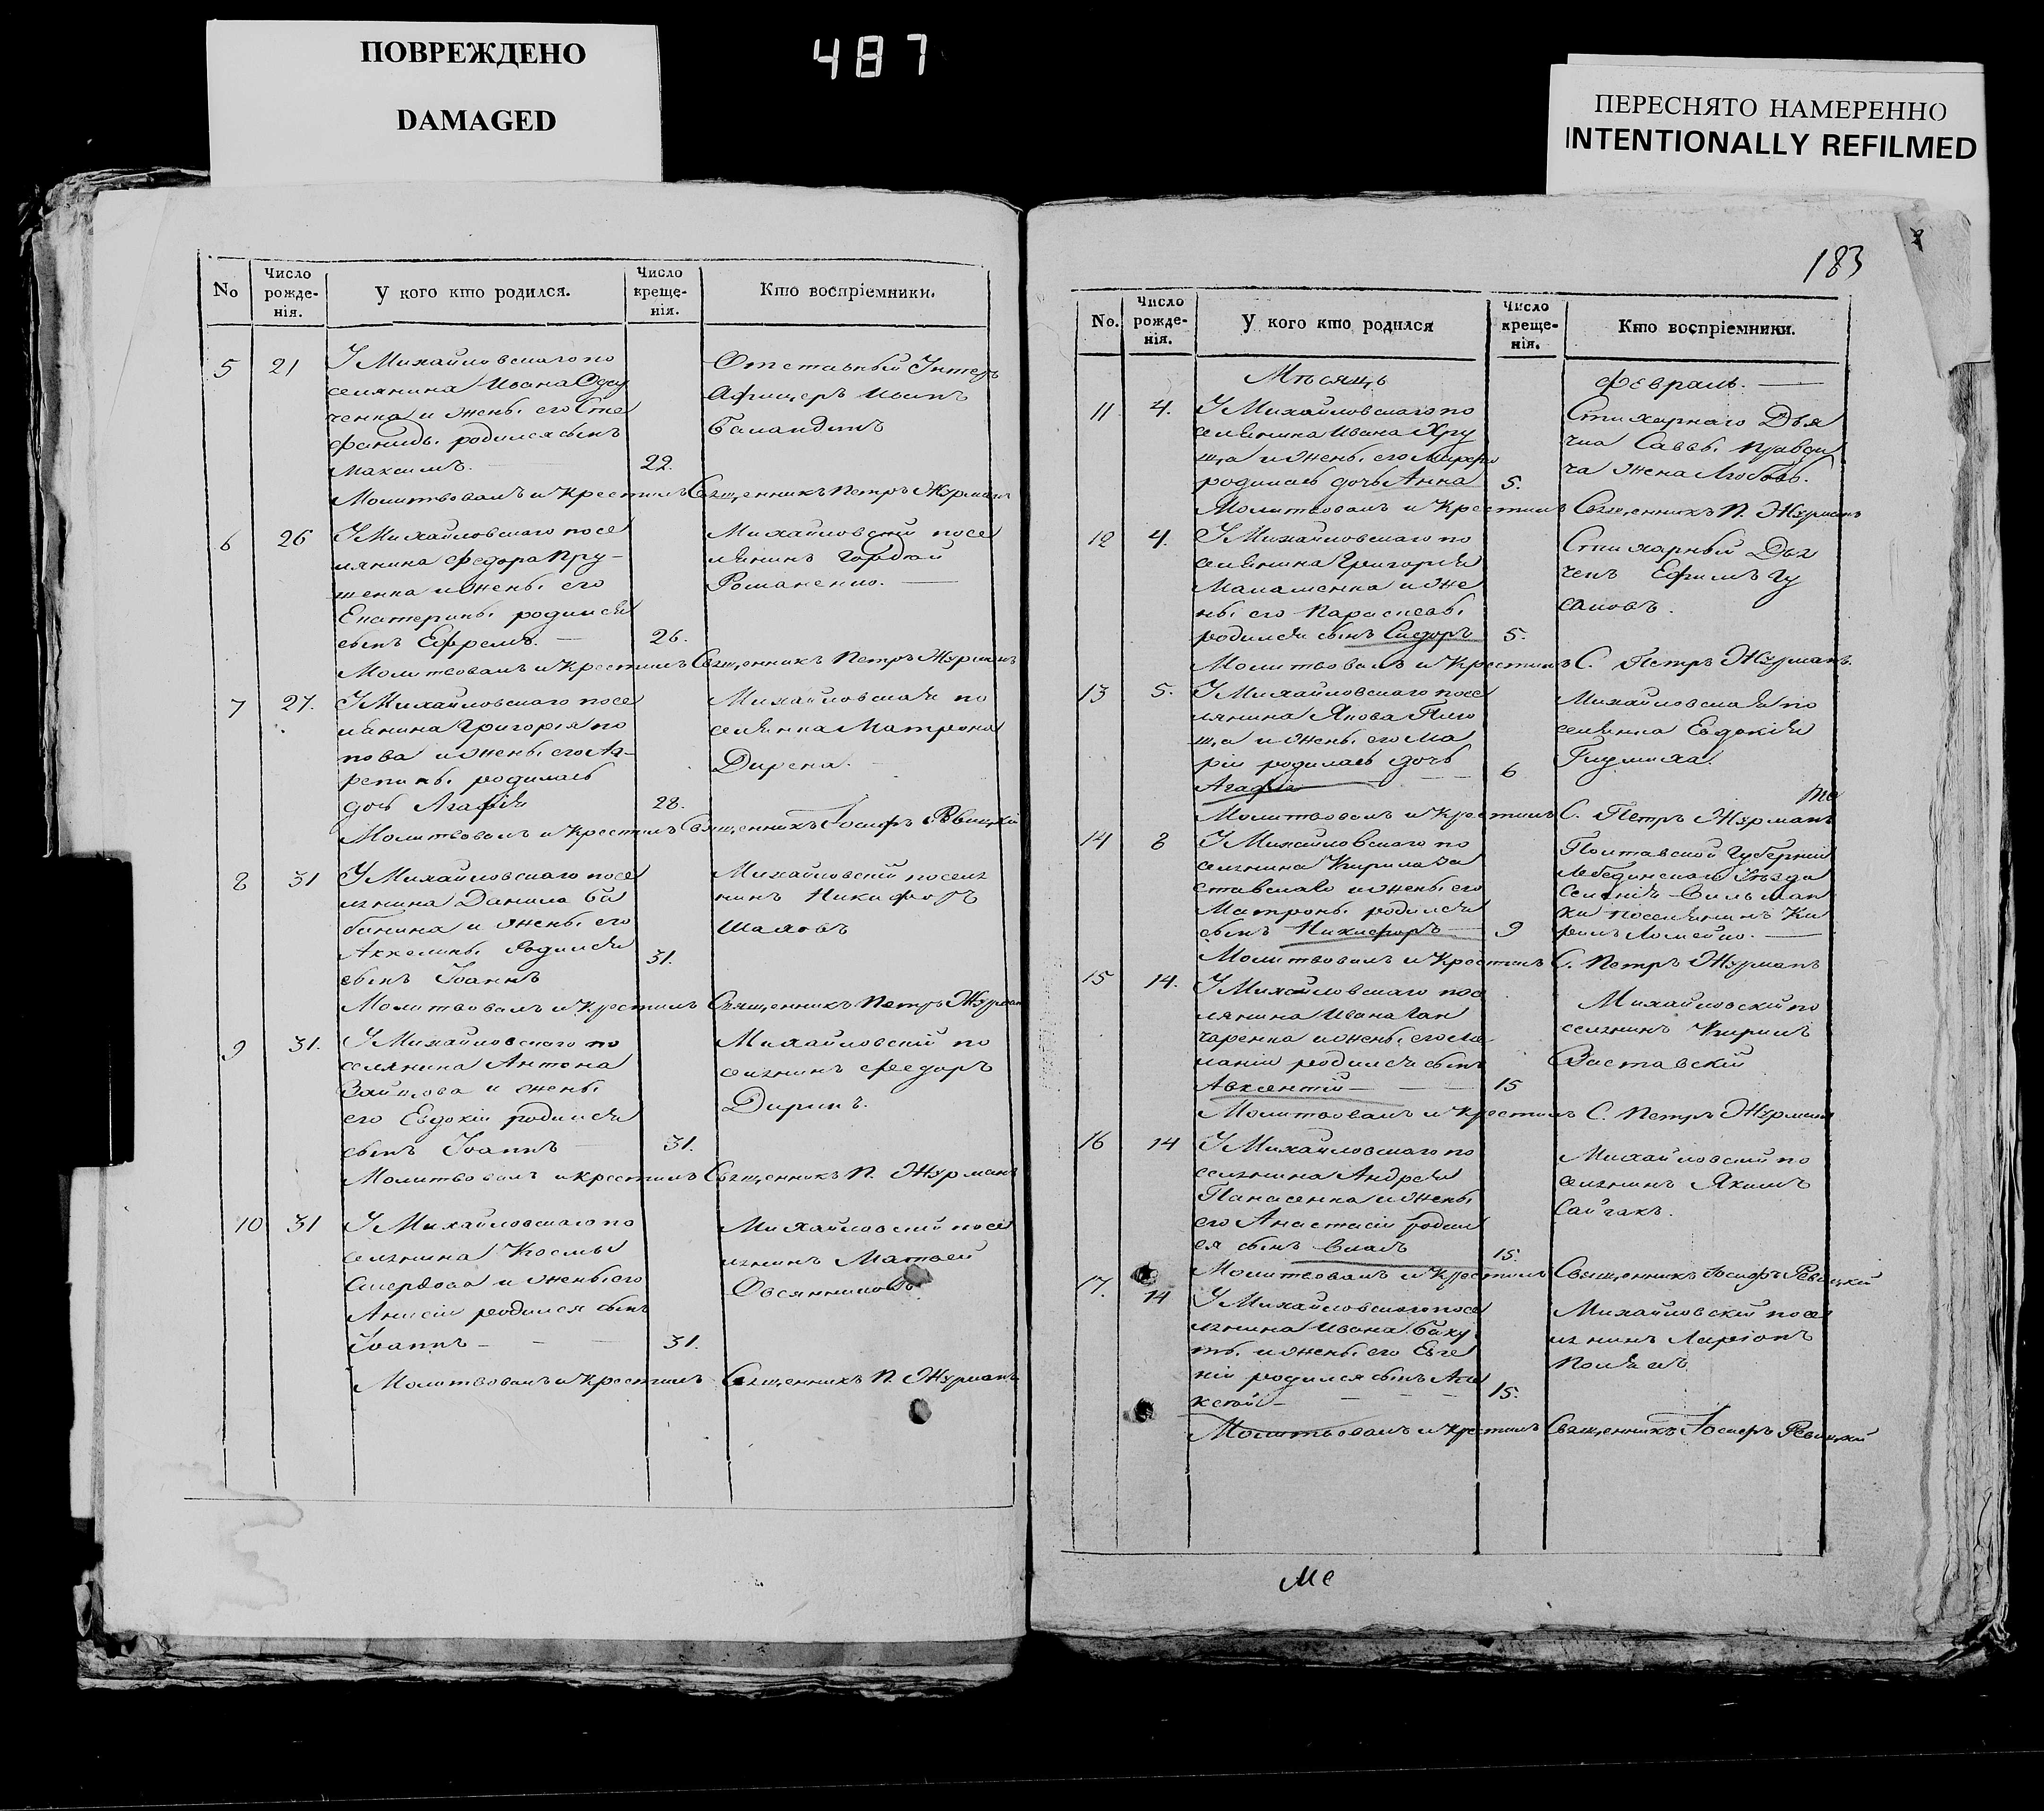 ПОВРЕЖДЕНО
DAMAGED
487
ПЕРЕСНЯТО НАМЕРЕННО
INTENTIONALLY REFILMED
No
Число рожде-нія.
У кого кто родился.
Число креще-нія.
Кто воспріемники.
5 21 У Михайловскаго по
селянина Ивана
ченка и жены его Сте
фаниды родился сынъ
Максимъ 22.
Отставный Унтеръ
Афицеръ Иванъ
Баландинъ
Молитвовалъ и Крестилъ Священникъ Петръ Журманъ
6 26 У Михайловскаго посе
лянина Федора Пру-
шенка и жены его
Екатерины родился
сынъ Ефремъ. 26.
Михайловскій посе
лянинъ Гордей
Романенко.
Молитвовалъ и Крестилъ Священникъ Петръ Журманъ
7 27. У Михайловскаго посе
лянина Григорія По
пова и жены его Аг-
репины родилась
дочь Агафія 28.
Михайловская по
селянка Матрона
Дирена.
Молитвовалъ и Крестилъ Священникъ Іосифъ Ревицкій
8 31 У Михайловскаго посе
лянина Данила Ба
банина и жены его
Акхелины родился
сынъ Іоаннъ 31.
Михайловскій поселя
нинъ Никифоръ
Шаховъ
Молитвовалъ и Крестилъ Священникъ Петръ Журман
9 31. У Михайловскаго по
селянина Антона
Зайцова и жены
его Евдокіи родился
сынъ Іоаннъ 31.
Михайловскій по
селянинъ Федоръ
Диринъ.
Молитвовалъ и крестилъ Священникъ П. Журманъ
10 31 У Михайловскаго по
селянина Космы
Смердова и жены его
Анисіи родился сынъ
Іоаннъ 31.
Михайловскій посе
лянинъ Матвей
Овсянниковъ
Молитвовалъ и Крестилъ Священникъ П. Журманъ
183
No.
Число рожде-нія.
У кого кто родился
Число креще-нія.
Кто воспріемники.
Мѣсяцъ Февраль.
11 4. У Михайловскаго по
селянина Ивана Хру
ща и жены его
родилась дочь Анна 5.
Стихарнаго Дья
чка Саввы Правди
ча жена Любовь.
Молитвовалъ и Крестилъ Священникъ П. Журманъ
12 4. У Михайловскаго по
селянина Григорія
Малашенка и же
ны его Параскевы
родился сынъ Сидоръ 5.
Стихарный Дья
чекъ Ефимъ Гу
саковъ.
Молитвовалъ и Крестилъ С. Петръ Журманъ.
13 5. У Михайловскаго посе
лянина Якова Плю
ща и жены его Ма
ріи родилась дочь
Агафія 6
Михайловская по
селянка Евдокія
Молитвовалъ и Крестилъ С. Петръ Журманъ
14 8 У Михайловскаго по
селянина Кирила За
ставскаго и жены его
Матроны родился
сынъ Никифоръ 9
Полтавской Губерніи
Лебединскаго Уѣзда
Селенія Вильшан
ки поселянинъ Ки
рилъ Ломейко.
Молитвовалъ и Крестилъ С. Петръ Журманъ
15 14. У Михайловскаго посе
лянина Ивана Ган
чаренка и жены его Ме
ланіи родился сынъ
Авксентій 15
Михайловскій по
селянинъ Кирилъ
Заставскій
Молитвовалъ и Крестилъ С. Петръ Журманъ
16 14 У Михайловскаго по
селянина Андрея
Панасенка и жены
его Анастасіи родил
ся сынъ Власъ 15.
Михайловскій по
селянинъ Якимъ
Сайгакъ.
Молитвовалъ и Крестилъ Священникъ Іосифъ Ревицкій
17. 14 У Михайловскаго посе
лянина Ивана Баку
ты и жены его Евге
ніи родился сынъ Але
ксей 15.
Михайловскій посе
лянинъ Ларіонъ
Полякъ
Молитвовалъ и Крестилъ Священникъ Іосифъ Ревицкій